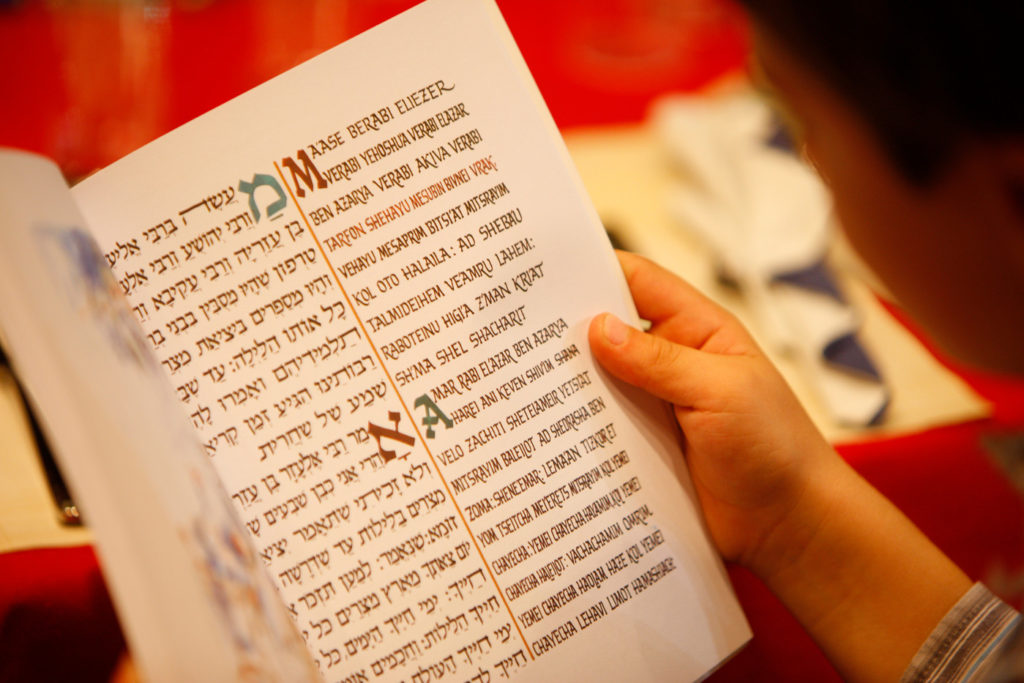 מעשה ברבי אליע
ורבי יהושע ורבי אלע
בן עזריה ורבי עקיבא ור
טרפון שהיו מסבין בבני בר
והיו מספרים ביציאת מצר
כל אותו הלילה: עד שב
תלמידיהם ואמרו לה
רבותינו הגיע זמן קריא
שמע של שחרית
אמר רבי אלעזר בן עזר
הרי אני כבן שבעים ש
ולא זכיתי שתאמר יציא
מצרים בלילות עד שדרשה
זומא: שנאמר: למען תזכר
יום צאתך מארץ מצרים כל י
חייך: ימי חייך הימים כל
חייך הלילות: וחכמים אומ
ימי חייך העולם
חייך לה
MAASE BERABI ELIEZER
VERABI YEHOSHUA VERABI ELAZAR
BEN AZARYA VERABI AKIVA VERABI
TARFON SHEHAYU MESUBIN BIVNEI VRAK;
VEHAYU MESAPRIM BITSTAT MITSRAYIM
KOL OTO HALAILA: AD SHEBAU
TALMIDEIHEM VEAMRU LAHEM:
RABOTEINU HIGIA Z'MAN KRIAT
SH'MA SHEL SHACHARIT
AMAR RABI EL'AZAR BEN AZARYA
HAREI ANI KEVEN SHIVIM SHANA
VELO ZACHITI SHETEIAMEIR YETSTAT
MITSRAYIM BALEILOT AD SHEDRASHA BEN
ZOMA: SHENEEMAR; LEMAAN TIZKOR ET
YOM TSEITCHA ME'ERETS MITSRAYIM KOL YEMEI
CHAYECHA: YEMEI CHAYECHA HAIAMIM, KOL YEMEI
CHAYECHA HALEILOT: VACHACHAMIM OMRIM:
YEMEI CHAYECHA HAOLAM HAZE KOL YEMEI
CHAYECHA LEHAVI LIMOT HAMASHIACH